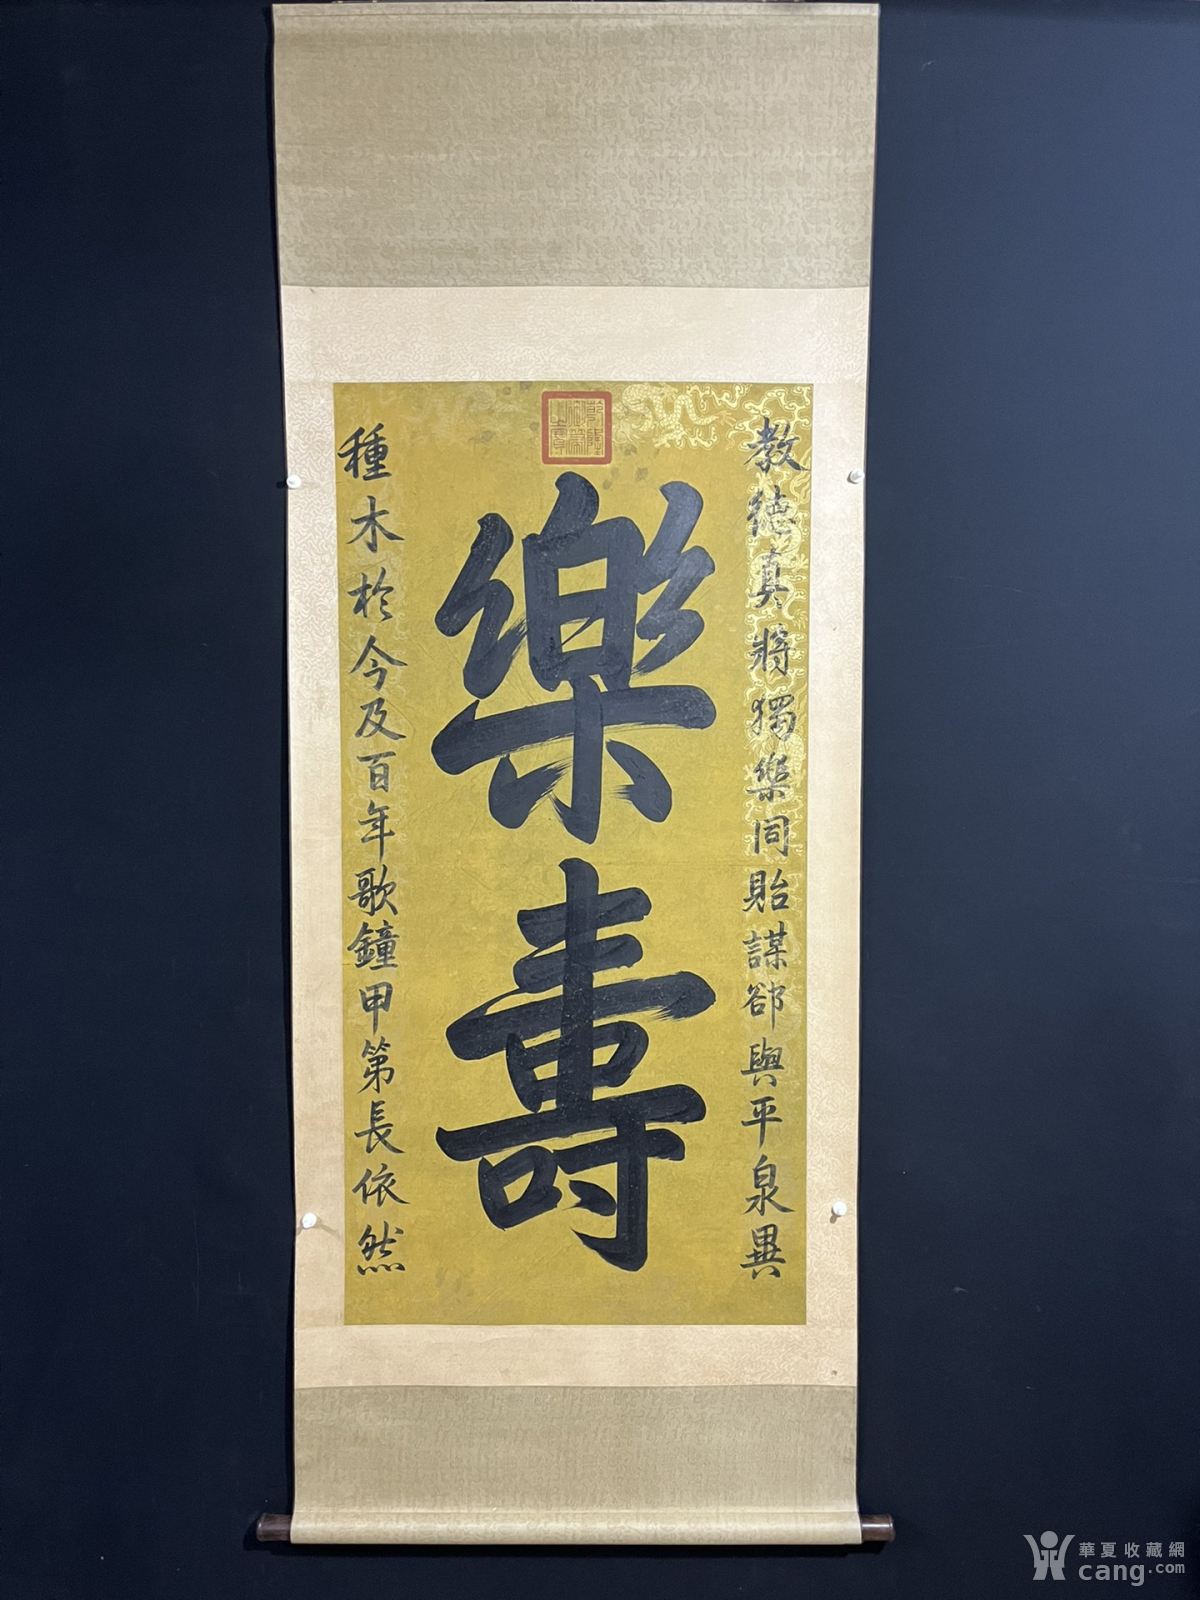 乾隆御筆之寶
教德真將獨樂同貽謀郤與平泉異
樂壽
種木於今及百年歌鐘甲第長依然
華夏收藏網
cang.com